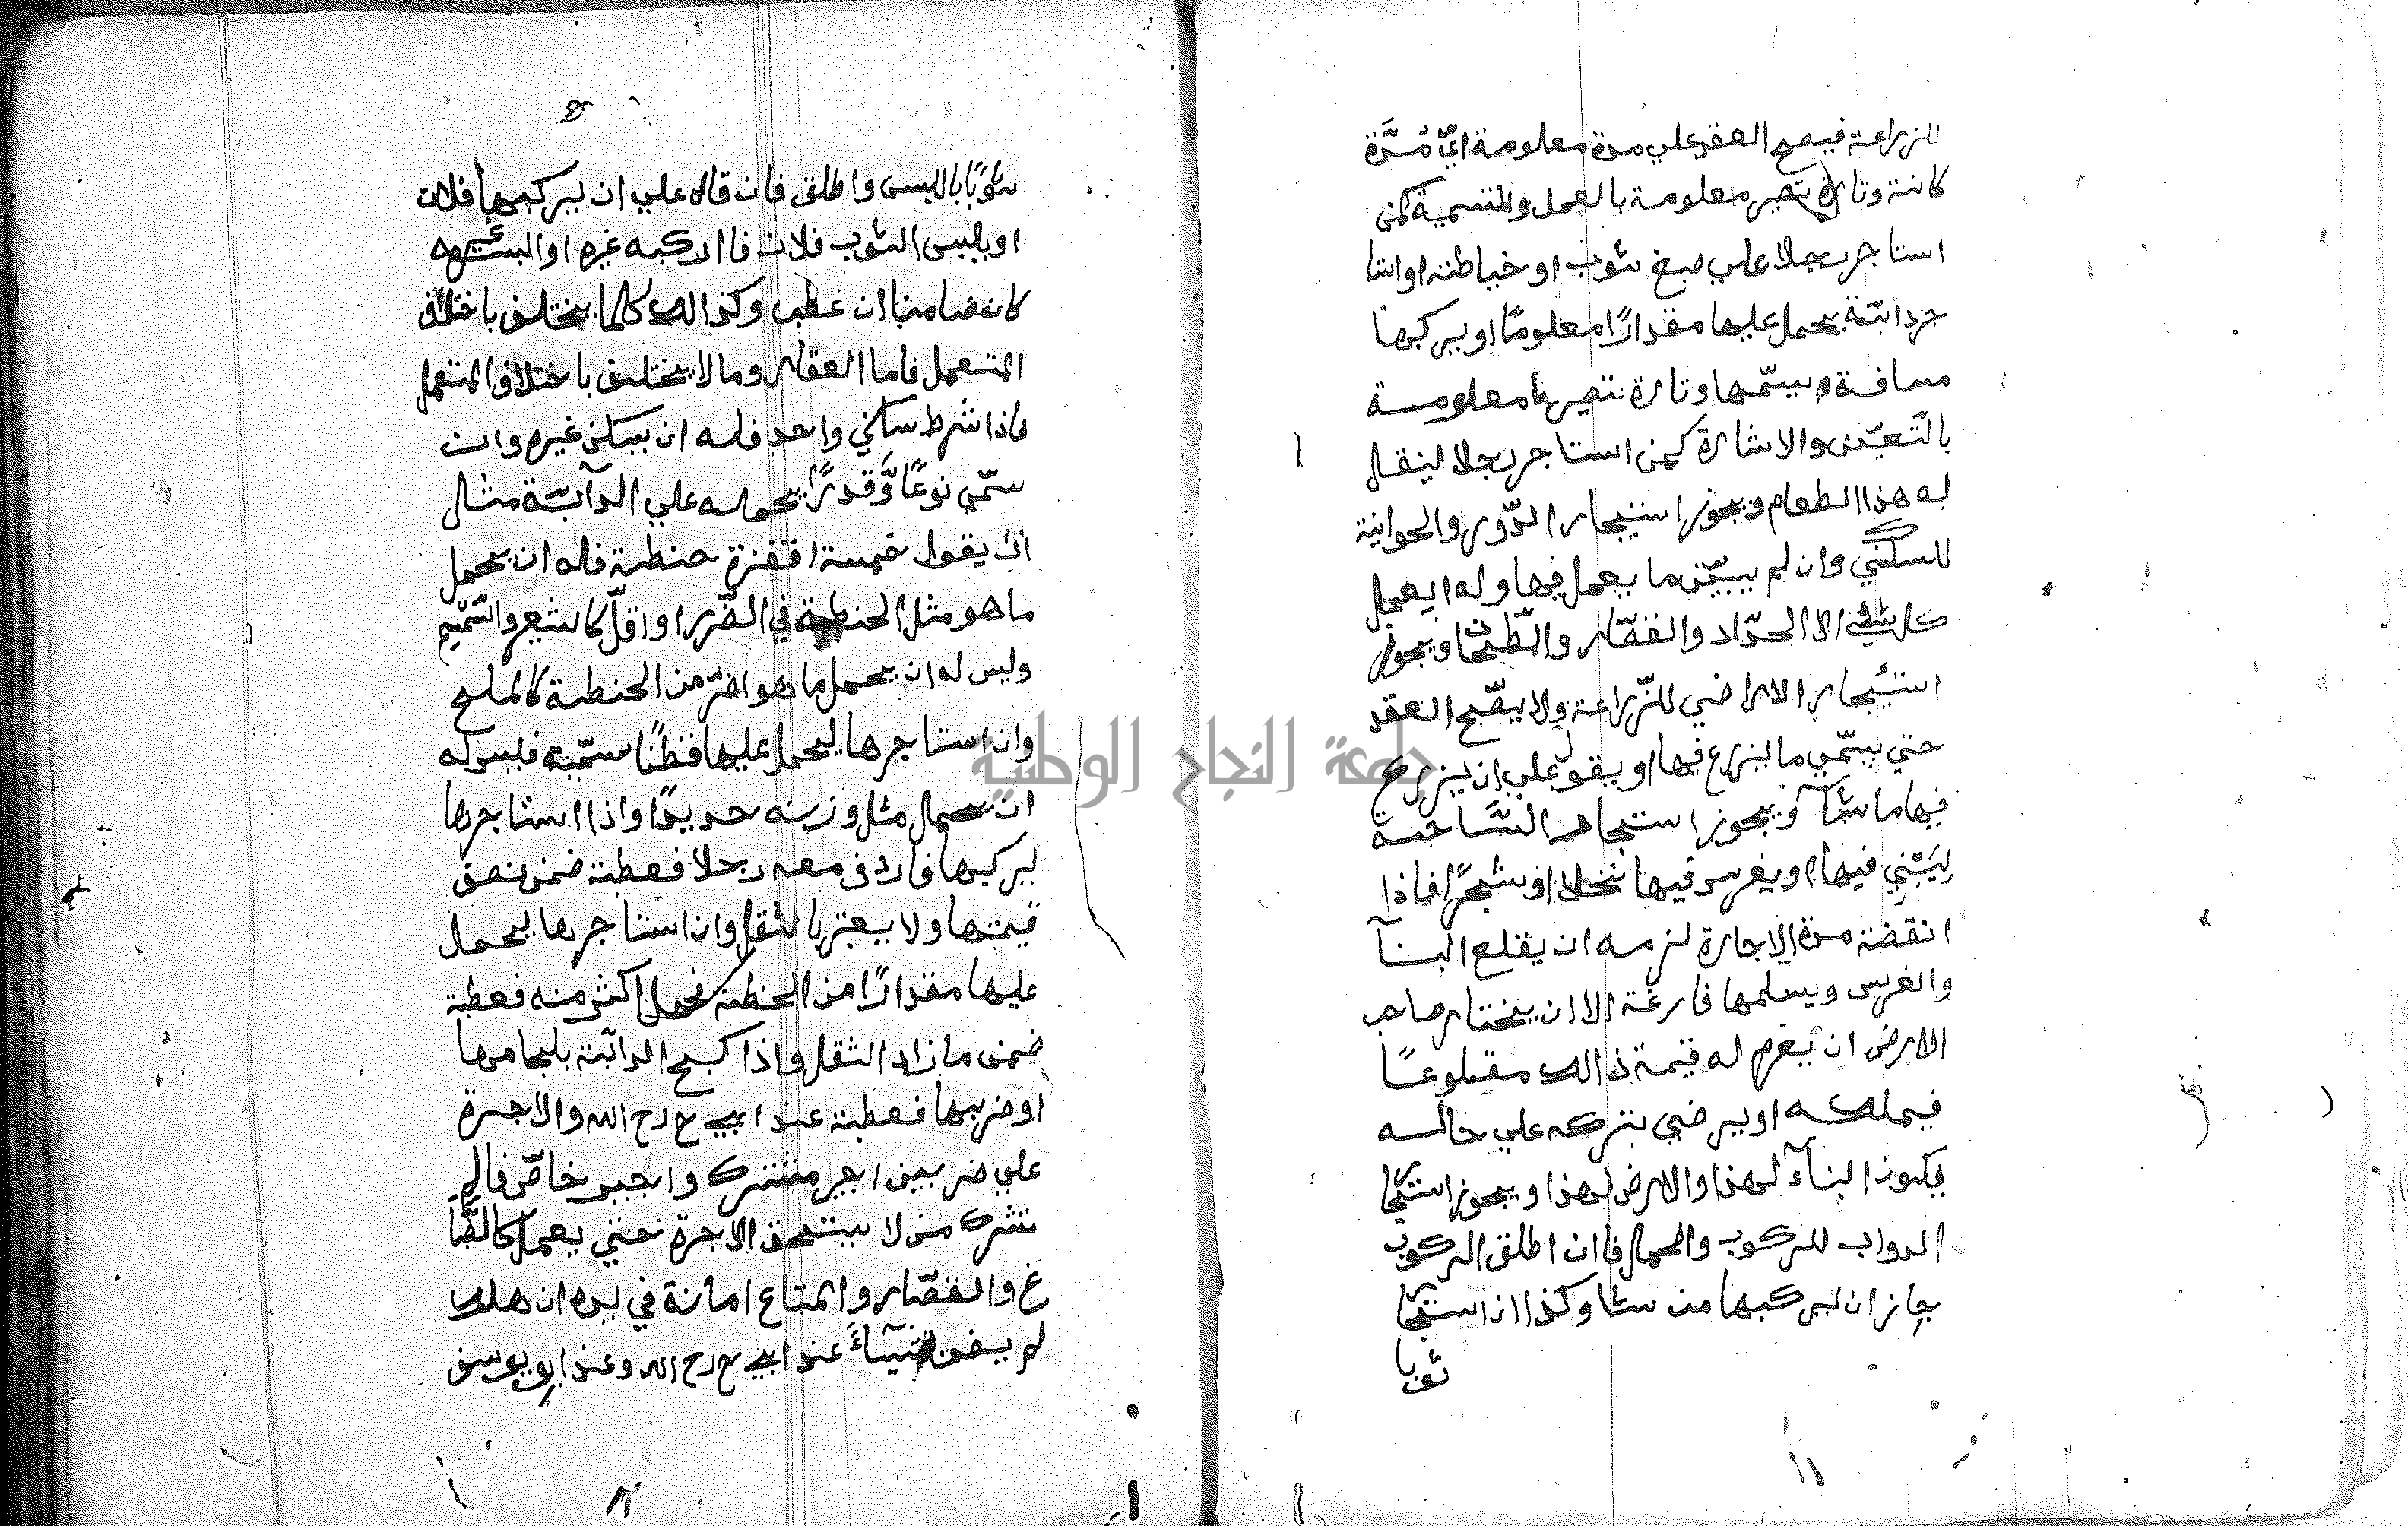 للزراعة فيصح العقد علي مدة معلومة ايّ مُدَّة
كانتة وتارة تصير معلومة بالعمل والتسمية كمن
استاجر رجلا علي صبغ ثوب او خياطته او استا
جر دابّة يحمل عليها مقدارًا معلومًا او يركبها
مسافة ويسمّها وتارة تصير معلومة
بالتّعيّن والاشارة كمن استاجر رجلا لينقل
له هذا الطعام ويجوز استيجار الدّور والحوانية
للسكني وان لم يبيّن ما يعمل فيها وله ان يعمل
كل شئ الا الحدّاد والقصّار والطّحان ويجوز
استئيجار الاراضي للزّراعة ولا يصّح العقد
حتي يسّمي ما يزرع فيها او يقول علي ان يزرع
فيها ما شآ ويجوز استيجار السّاحة
ليَبْني فيها او يغرس فيها نخلا او شجرًا فاذا
انقضة مدة الاجارة لزمه ان يقلع البنآ
والغرس ويسلمها فارغة الا ان يختار صاحب
الارض ان يغرم له قيمة ذالك مقلوعًا
فيملكه او يرضي بتركه علي حاله
فيكون البنآء لهذا والارض لهذا ويجوز استيجا
الدواب للركوب والحمل فاان اطلق الركوب
جاز ان ليركبها من شا وكذا ان استيجا
ثوبا
ثوبًا باللبس واطلق فان قال علي ان يركبها فلان
او يلبس الثوب فلان فاا ركبه غيره او البسه
كان ضامنا ان عطب وكذالك كلما يختلف باختلاف
المتعمل فاما العقار وما لا يختلف باختلاف المتعمل
فاذا شرط سكني واحد فله ان يسكن غيره وان
سمّي نوعًا وَّقدرًا يحمله علي الدآبّة مثل
ان يقول خمسة اقفزة حنطة فله ان يحمل
ما هو مثل الحنطة في الضّرر او اقلّ كالشعير والسّمسم
وليس له ان يحمل ما هو اضرّ من الحنطة كالملح
وان استاجرها ليحمل عليها قطنًا سمّيه فليس له
ان يحمل مثل وزنه حديدًا واذا استاجرها
ليركبها فاردف معه رجلا فعطبة ضمن نصف
قيمتها ولا يعتبر بالثقل وان استاجرها ليحمل
عليها مقدارًا من الحنطة فحمل اكثر منه فعطبة
ضمن ما زاد الثقل واذا كبح الدابّة بلجامها
او ضربها فعطبة عند ابي ح رح الله والاجرة
علي ضربين اجير مشترك واجير خاصّ فالم
شترك من لا يستحق الاجرة حتي يعمل كالصَّبا
غ والقصّار والمتاع امانة في يده ان هلك
لم يضمن شيآءً عند ابي ح رح الله وعند ابو يوسف